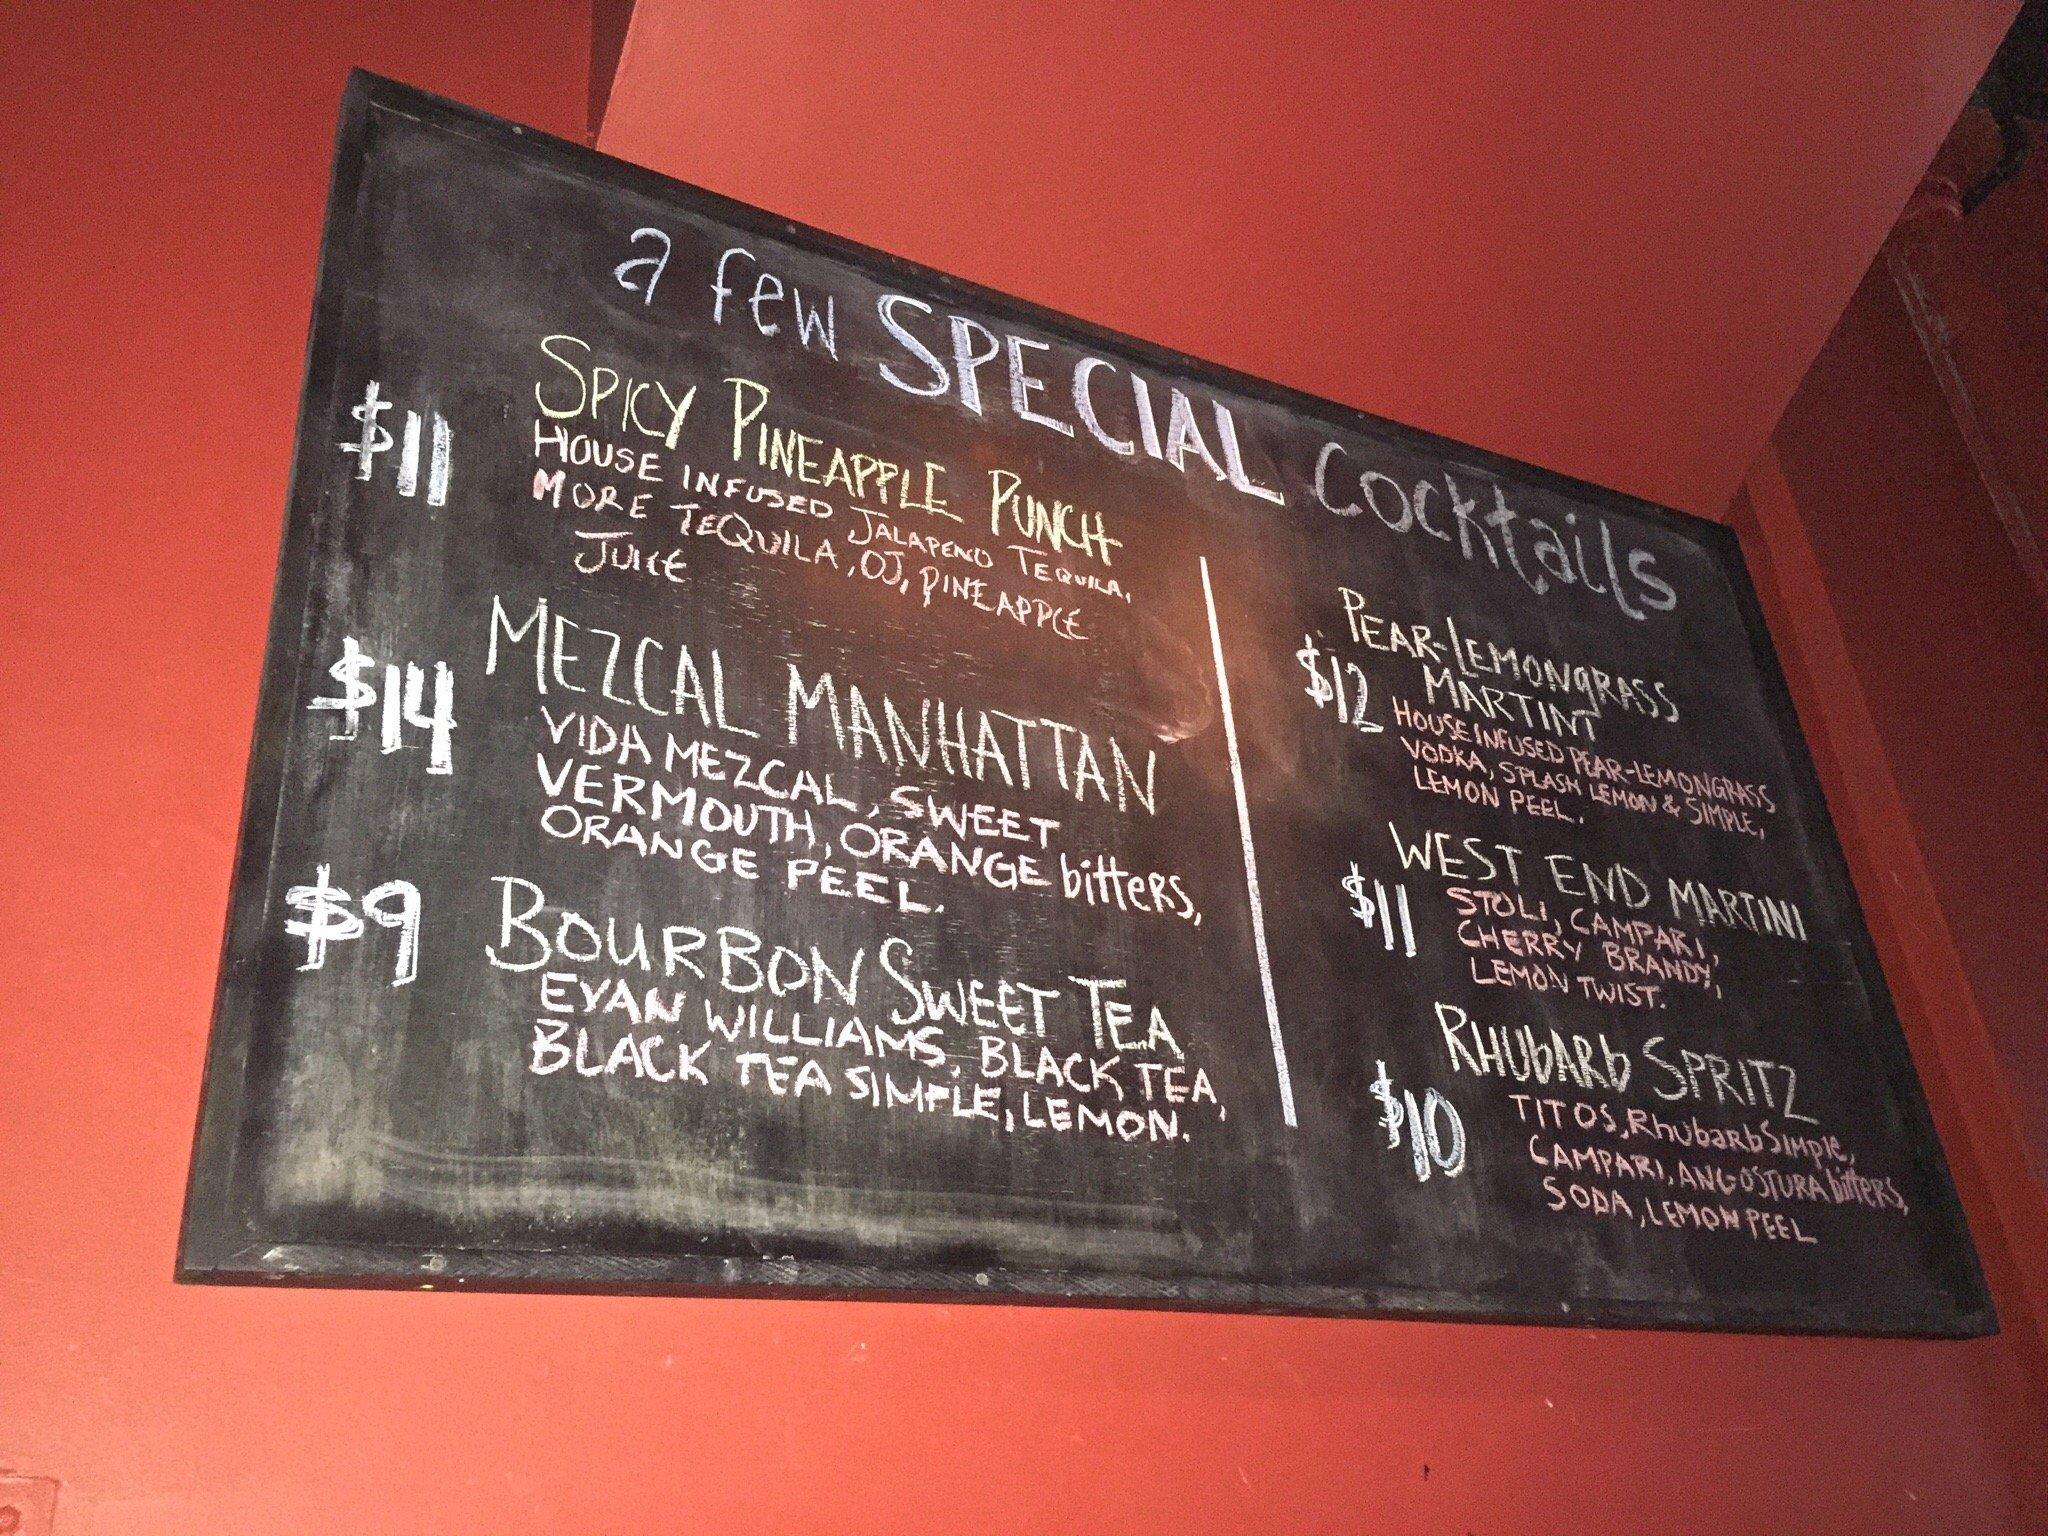 a few SPECIAL cocktails
$11
SPICY PINEAPPLE PUNCH
HOUSE INFUSED JALAPENO TEQUILA,
MORE TEQUILA, OJ, PINEAPPLE
JUICE
$14
MEZCAL MANHATTAN
VIDA MEZCAL, SWEET
VERMOUTH, ORANGE bitters,
ORANGE PEEL.
$9
BOURBON SWEET TEA
EVAN WILLIAMS, BLACK TEA,
BLACK TEA SIMPLE, LEMON.
PEAR-LEMONGRASS
MARTINI
$12
HOUSE INFUSED PEAR-LEMONGRASS
VODKA, SPLASH LEMON & SIMPLE,
LEMON PEEL.
WEST END MARTINI
$11
STOLI, CAMPARI,
CHERRY BRANDY,
LEMON TWIST.
RHUbARb SPRITZ
$10
TITOS, RhubarbSimple,
CAMPARI, ANGOSTURA bitters,
SODA, LEMON PEEL